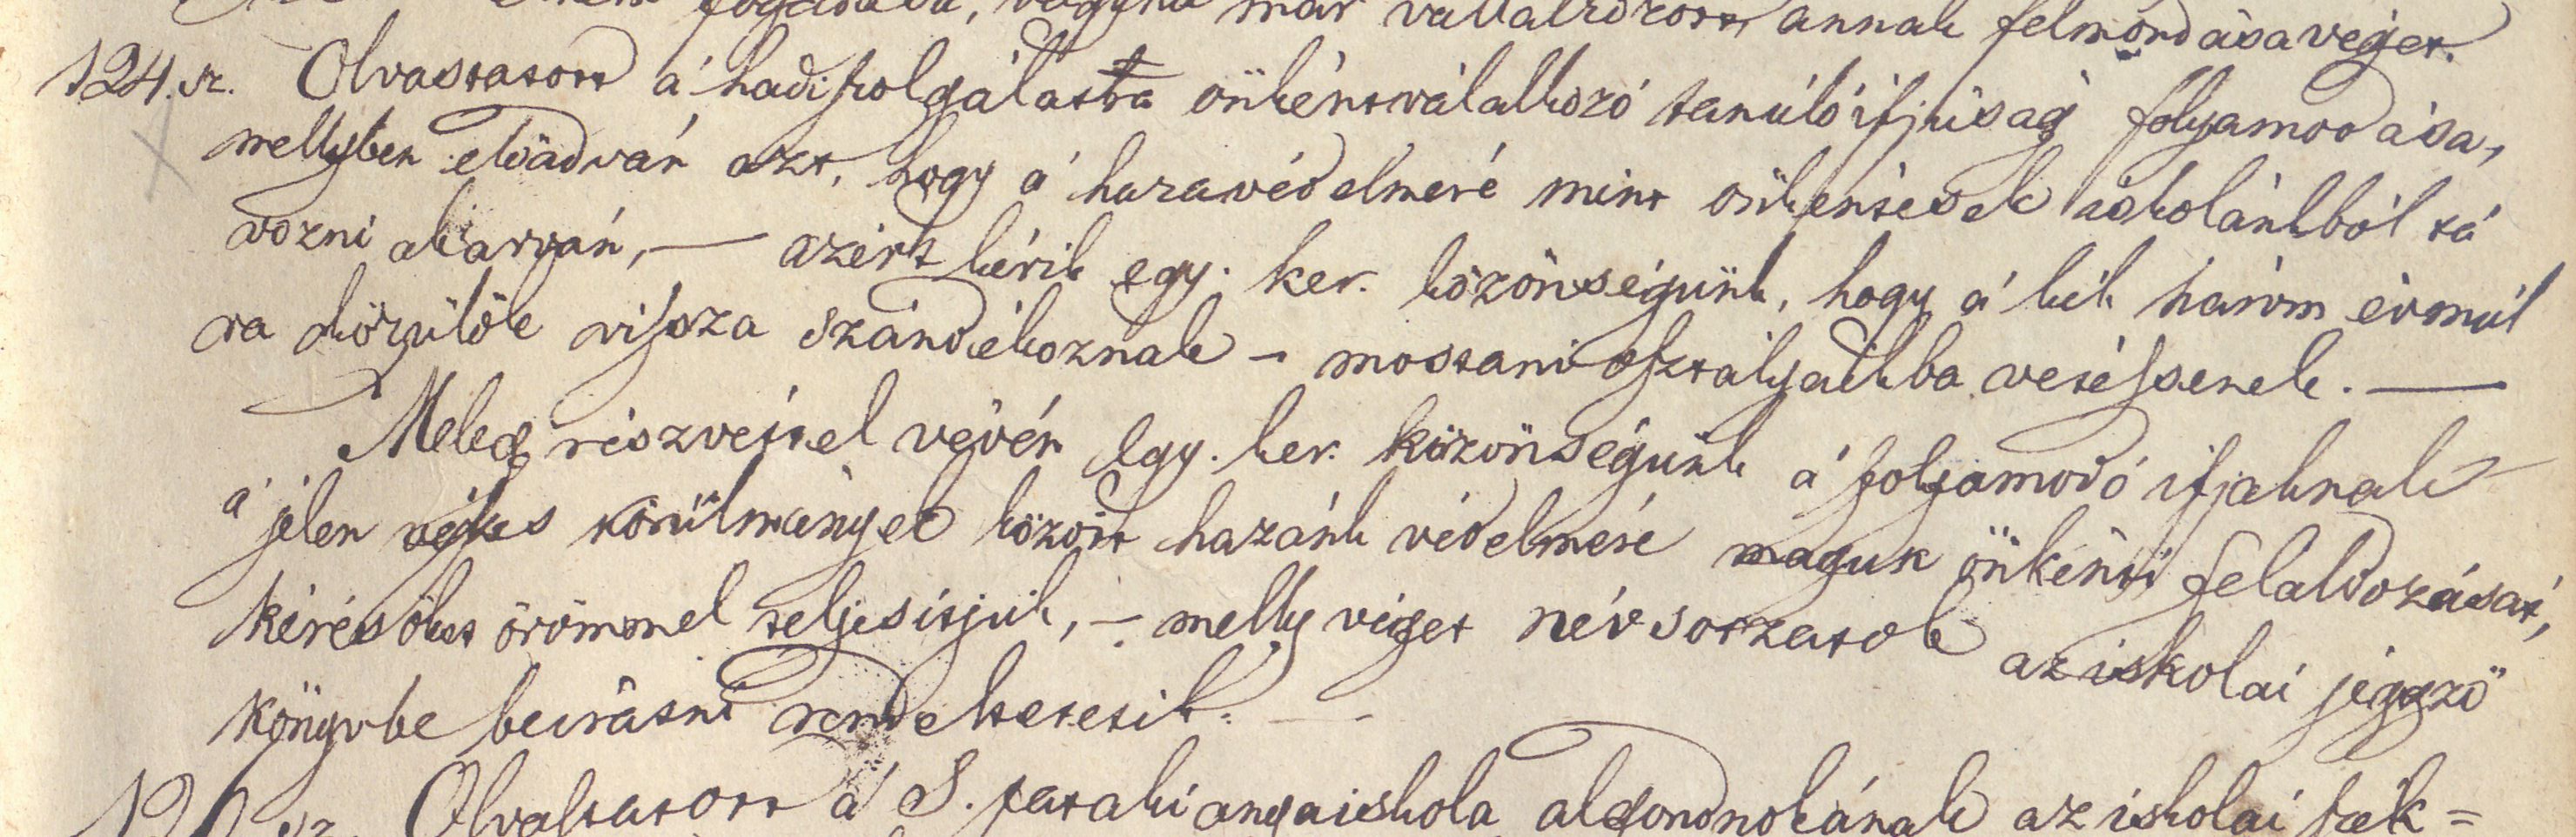 fogadása, vagyha már vállalkozott, annak felmondása véget.
124. sz. Olvastatott a' hadi szolgálatra önkéntválalkozó tanúló ifjúság folyamodása,
mellyben előadván azt, hogy a' haza védelmeré mint önkéntesek iskolánkból tá
vozni akarván, — azért kérik egy. ker. közönségünk, hogy a' kik három év múl
va közülök vissza szándékoznak – mostani osztályaikba vétessenek. —
Meleg részvéttel vévén Egy. ker. közönségünk a' folyamodó ifjaknak
a' jelen körülmények között hazánk védelmére maguk önkénti feláldozását,
kérésöket örömmel teljesitjük, – melly véget névsorzatok az iskolai jegyző
könyvbe beiratni rendeltetetik. —
126 sz. Olvastatott a' S. pataki anyaiskola algondnokának az iskolai fák=